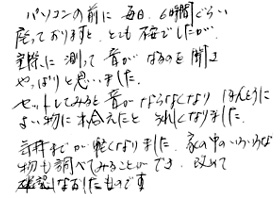 パソコンの前に毎日、6時間ぐらい
座っておりますと、とても不安でしたが、
実際に測って音がなるのを聞き
やっぱりと思いました。
セットしてみると音がならなくなりほんとうに
よい物に出会えたとうれしくなりました。
気持までが軽くなりました。家の中のいろいろな
物も調べてみることができ、改めて
確認しなおしたものです